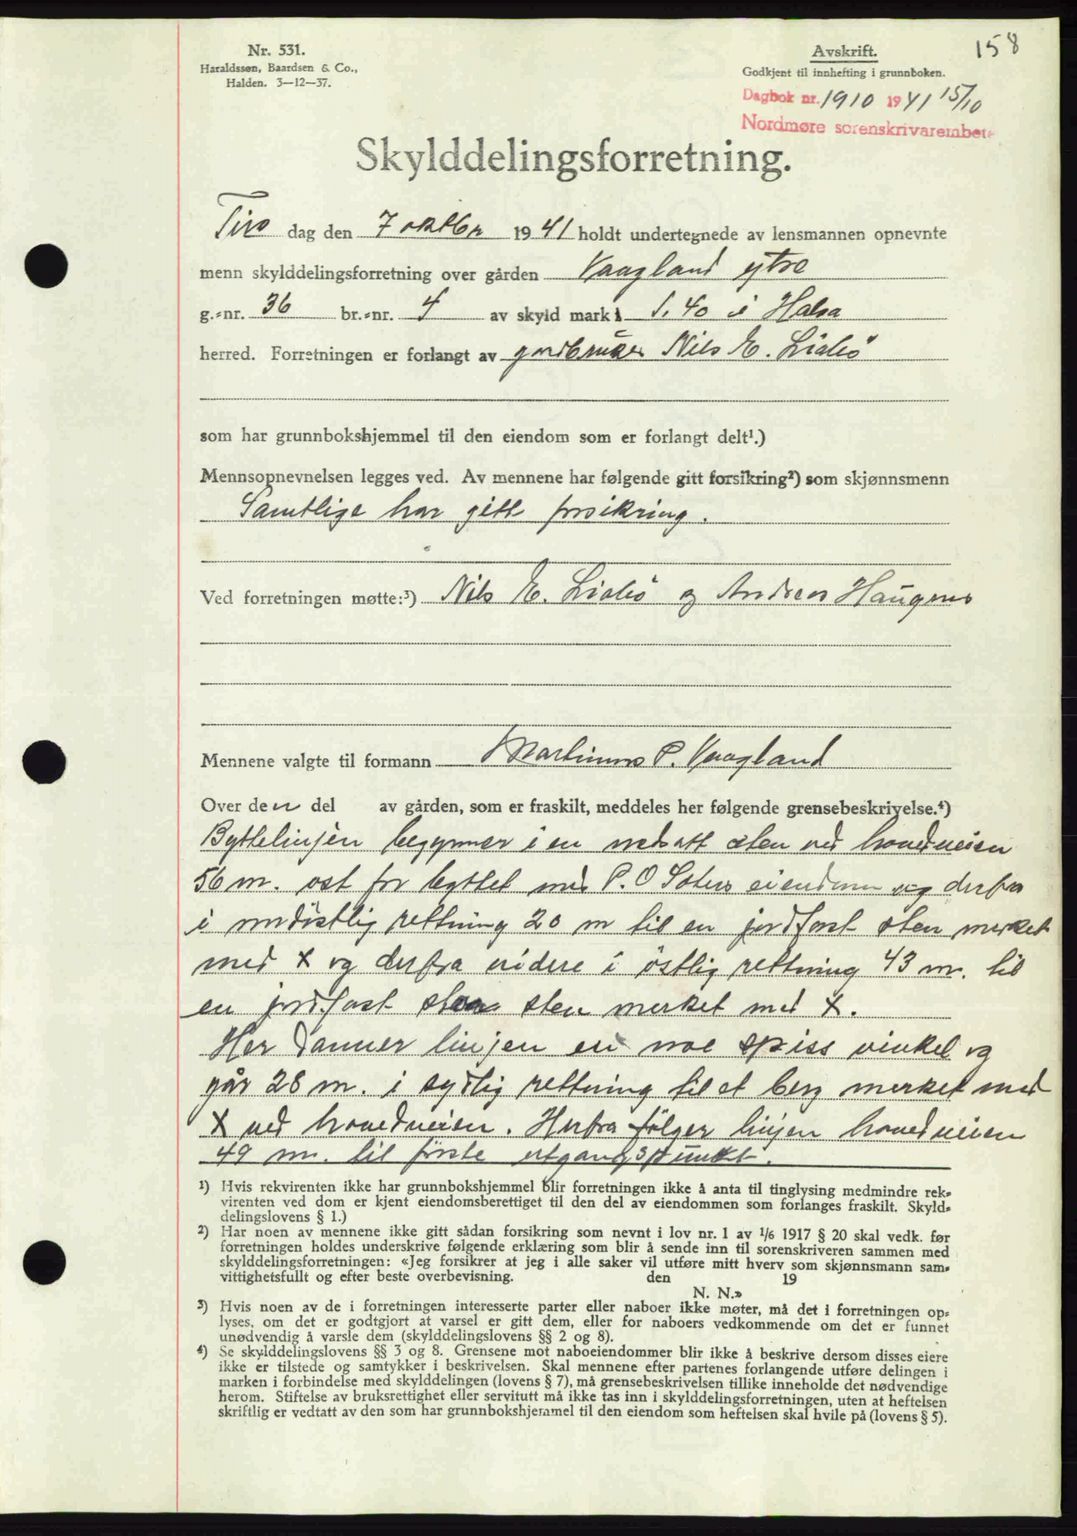 158
Nr. 531.
Haraldssøn, Baardsen & Co.,
Halden. 3—12—37.
Avskrift.
Godkjent til innhefting i grunnboken.
Dagbok nr. 1910 1941 15/10
Nordmøre sorenskriverembete
Skylddelingsforretning.
Tirs dag den 7 oktbr 1941 holdt undertegnede av lensmannen opnevnte
menn skylddelingsforretning over gården Vaagland ytre
g.-nr. 36 br.-nr. 4 av skyld mark 1.40 i Halsa
herred. Forretningen er forlangt av gardbruker Nils E. Liabö
som har grunnbokshjemmel til den eiendom som er forlangt delt¹.)
Mennsopnevnelsen legges ved. Av mennene har følgende gitt forsikring²) som skjønnsmenn
Samtlige har gitt forsikring.
Ved forretningen møtte:³) Nils E. Liabö og Andreas Haugens
Mennene valgte til formann Martinus P. Vaagland
Over den del av gården, som er fraskilt, meddeles her følgende grensebeskrivelse.⁴)
Byttelinjen begynner i en nedsatt sten ved hovedveien
56 m. ost for byttet med P. O eiendom og derfra
i nordöstlig rettning 20 m til en jordfast sten merket
med X og derfra videre i östlig rettning 43 m. til
en jordfast sten merket med X.
Her danner linjen en noe spiss vinkel og
går 28 m. i sydlig rettning til et berg merket med
X ved hovedveien. Herfra fölger linjen hovedveien
49 m. til förste utgangspunkt.
¹) Hvis rekvirenten ikke har grunnbokshjemmel blir forretningen ikke å anta til tinglysing medmindre rek-
virenten ved dom er kjent eiendomsberettiget til den del av eiendommen som forlanges fraskilt. Skyld-
delingslovens § 1.)
²) Har noen av mennene ikke gitt sådan forsikring som nevnt i lov nr. 1 av 1/6 1917 § 20 skal vedk. før
forretningen holdes underskrive følgende erklæring som blir å sende inn til sorenskriveren sammen med
skylddelingsforretningen: «Jeg forsikrer at jeg i alle saker vil utføre mitt hverv som skjønnsmann sam-
vittighetsfullt og efter beste overbevisning. den 19
N. N.»
³) Hvis noen av de i forretningen interesserte parter eller naboer ikke møter, må det i forretningen op-
lyses, om det er godtgjort at varsel er gitt dem, eller for naboers vedkommende om det er funnet
unødvendig å varsle dem (skylddelingslovens §§ 2 og 8).
⁴) Se skylddelingslovens §§ 3 og 8. Grensene mot naboeiendommer blir ikke å beskrive dersom disses eiere
ikke er tilstede og samtykker i beskrivelsen. Skal mennene efter partenes forlangende utføre delingen i
marken i forbindelse med skylddelingen (lovens § 7), må grensebeskrivelsen tillike inneholde det nødvendige
herom. Stiftelse av bruksrettighet eller servitutt må ikke tas inn i skylddelingsforretningen, uten at heftelsen
skriftlig er vedtatt av den som har grunnbokshjemmel til den eiendom som heftelsen skal hvile på (lovens § 5).